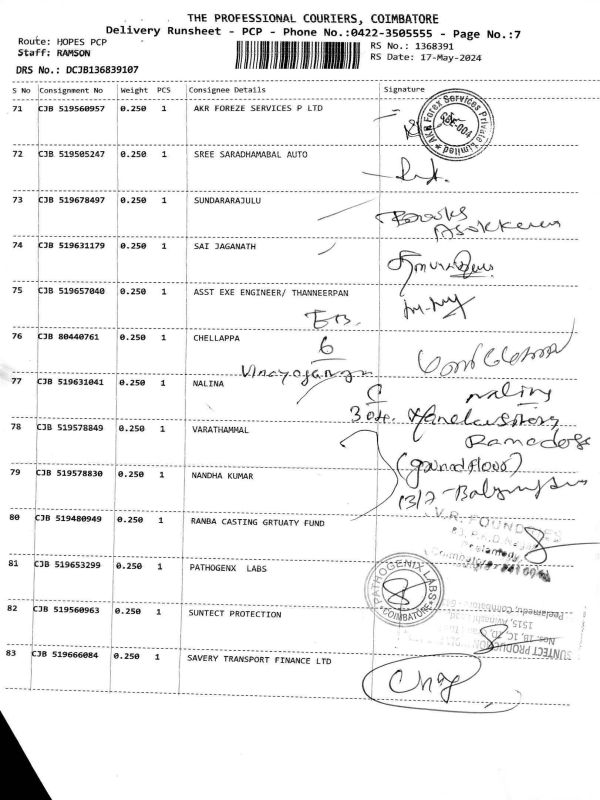 THE PROFESSIONAL COURIERS, COIMBATORE
Delivery Runsheet - PCP - Phone No.:0422-3505555 - Page No.:7
Route: HOPES PCP
RS No.: 1368391
Staff: RAMSON
RS Date: 17-May-2024
DRS No.: DCJB136839107
S No Consignment No Weight PCS Consignee Details Signature
71 CJB 519560957 0.250 1 AKR FOREZE SERVICES P LTD
AKR Forex Services Private Limited
72 CJB 519505247 0.250 1 SREE SARADHAMABAL AUTO
73 CJB 519678497 0.250 1 SUNDARARAJULU
74 CJB 519631179 0.250 1 SAI JAGANATH
75 CJB 519657040 0.250 1 ASST EXE ENGINEER/ THANNEERPAN
76 CJB 80440761 0.250 1 CHELLAPPA
6
77 CJB 519631041 0.250 1 NALINA
naliny
78 CJB 519578849 0.250 1 VARATHAMMAL
(ground floor)
79 CJB 519578830 0.250 1 NANDHA KUMAR
80 CJB 519480949 0.250 1 RANBA CASTING GRTUATY FUND
81 CJB 519653299 0.250 1 PATHOGENX LABS
PATHOGENIX LABS
COIMBATORE
82 CJB 519560963 0.250 1 SUNTECT PROTECTION
83 CJB 519666084 0.250 1 SAVERY TRANSPORT FINANCE LTD